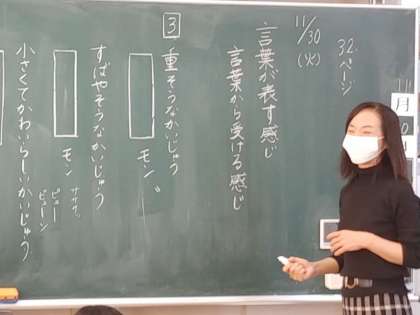 32ページ
11/30
(火)
言葉が表す感じ
言葉から受ける感じ
3
重そうなかいじゅう
モン
すばやそうなかいじゅう
モン
ササッ
ビュー
ビューン
小さくてかわいらしいかいじゅう
月